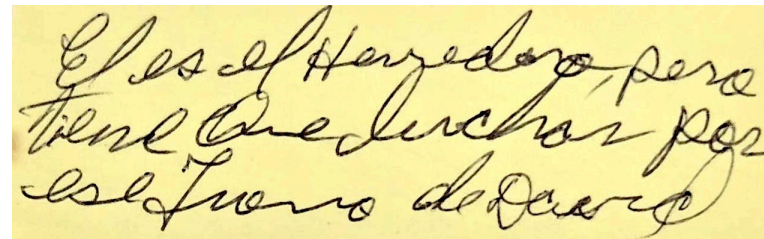 El es el Herredero, pero
tiene que luchar por
ese Trono de David